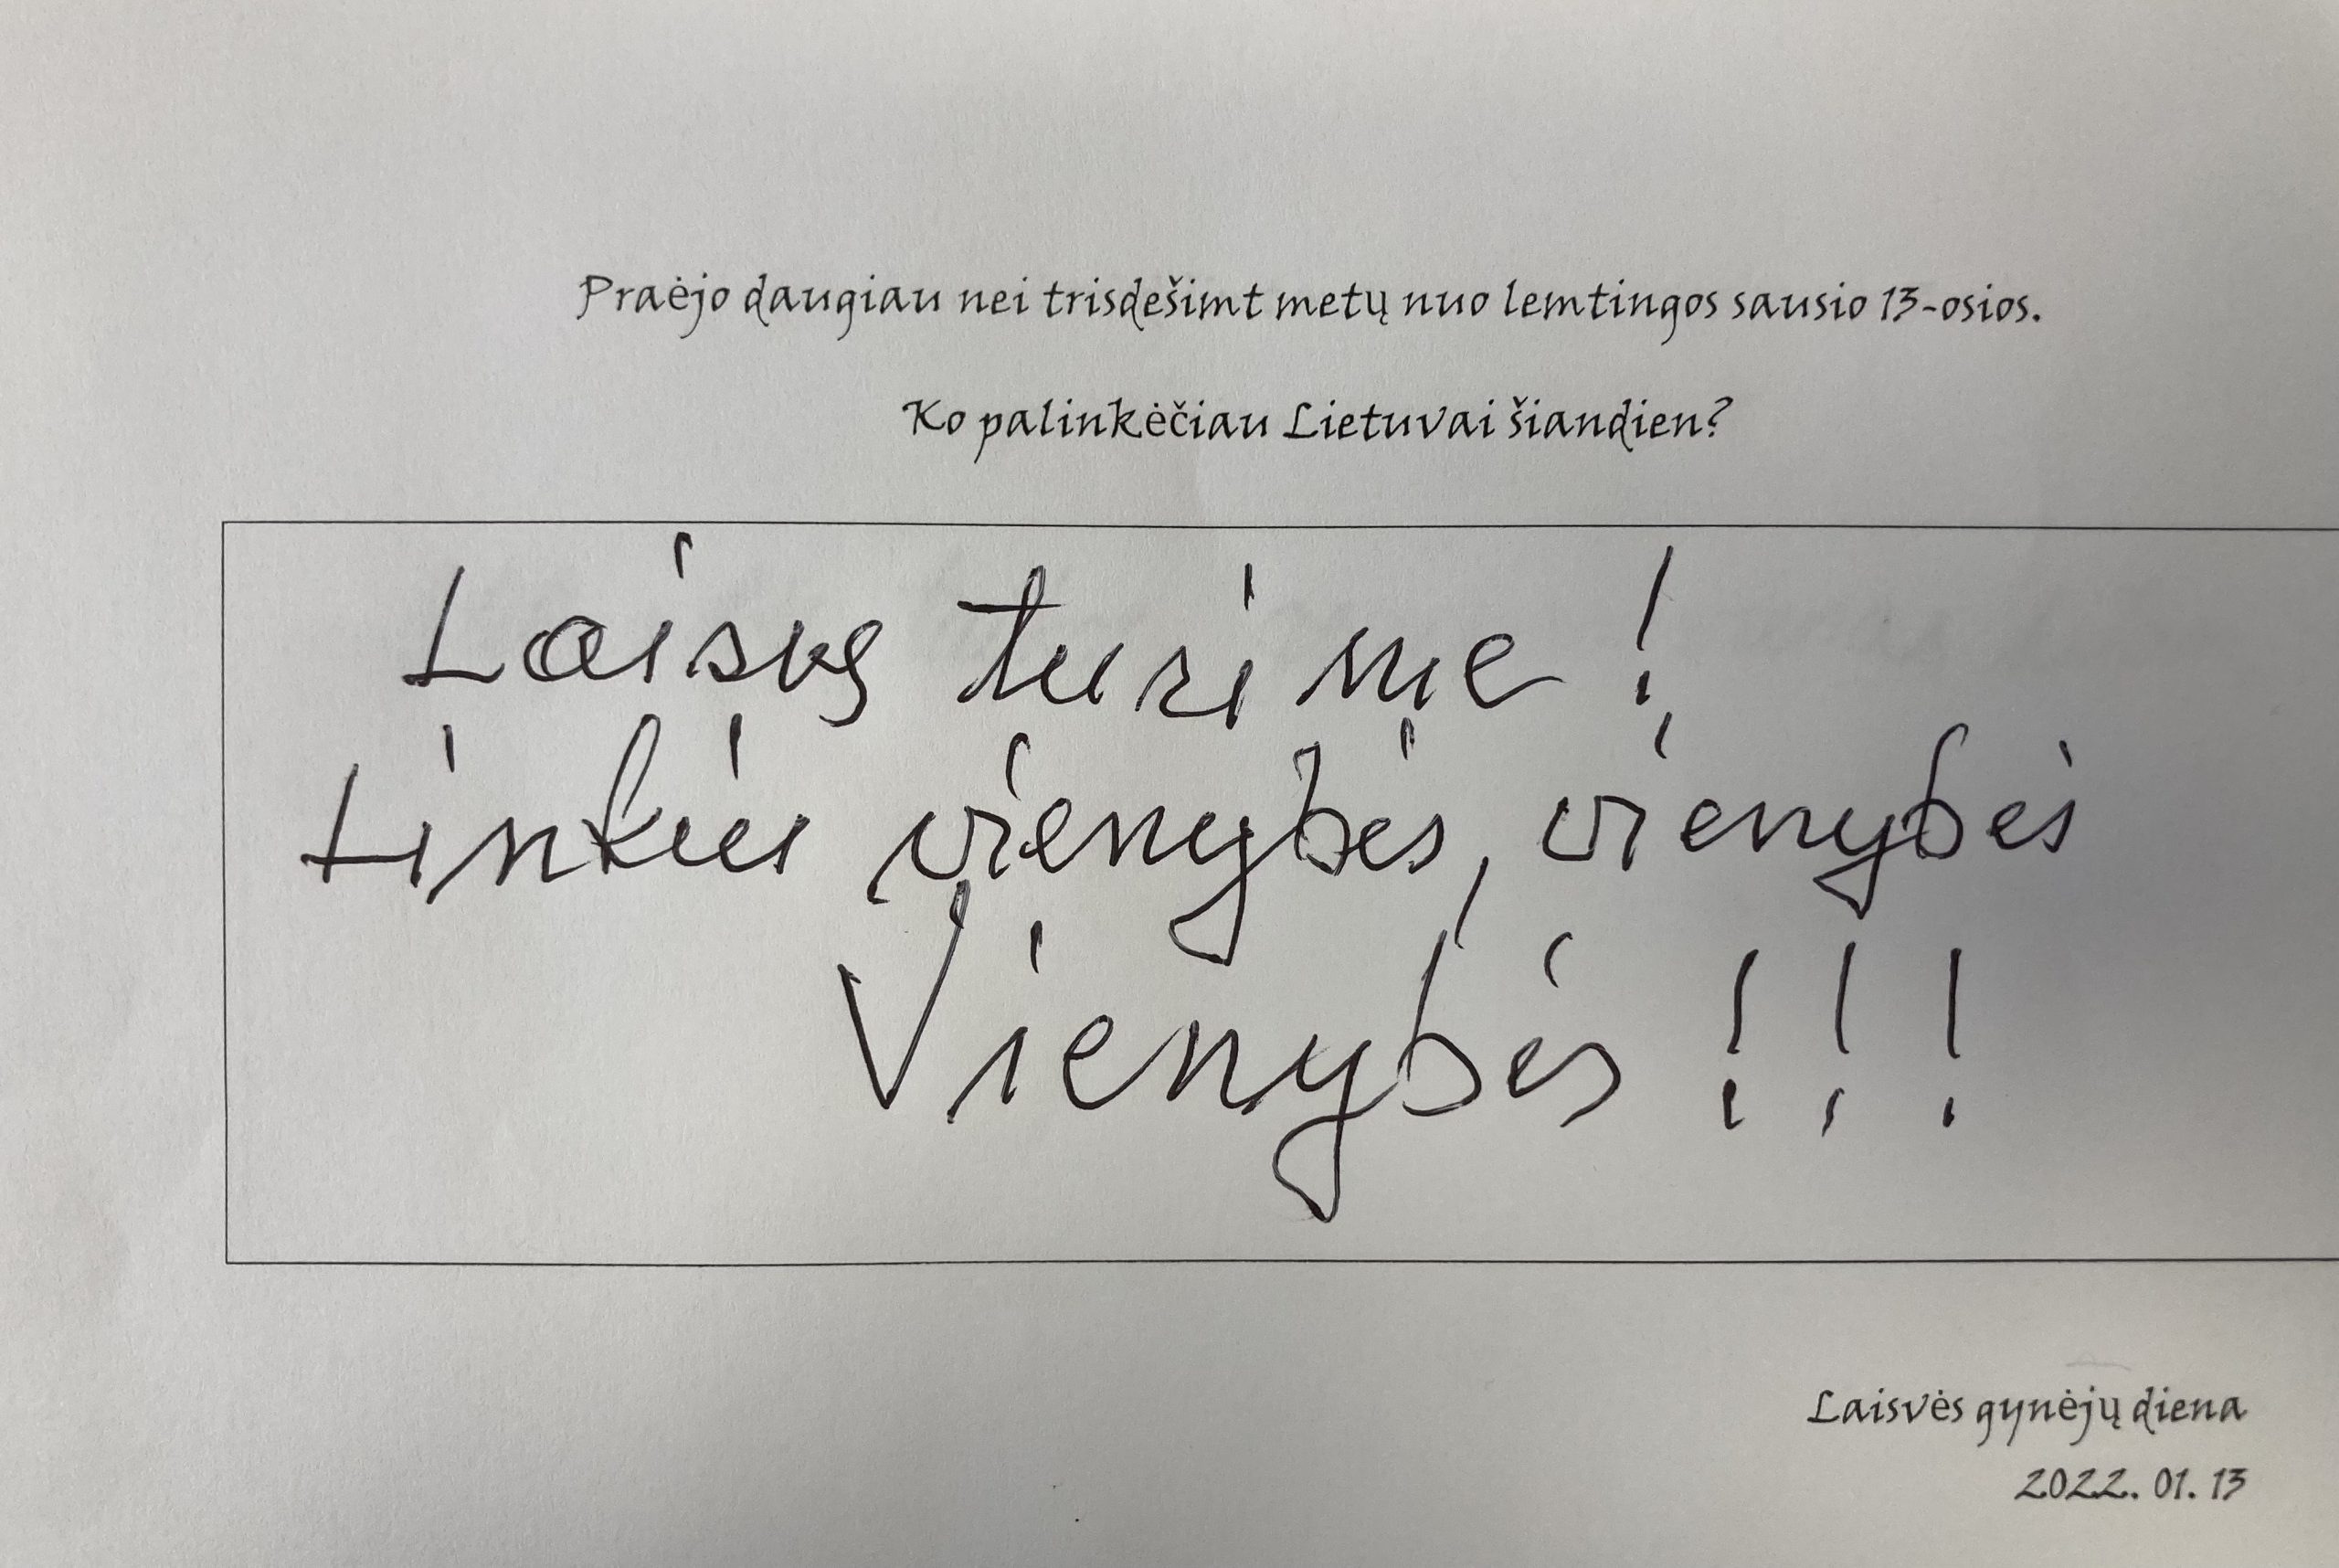 Praėjo daugiau nei trisdešimt metų nuo lemtingos sausio 13-osios.
Ko palinkėčiau Lietuvai šiandien?
Laisvę turime!
Linkiu vienybės, vienybės
Vienybės!!!
Laisvės gynėjų diena
2022. 01. 13